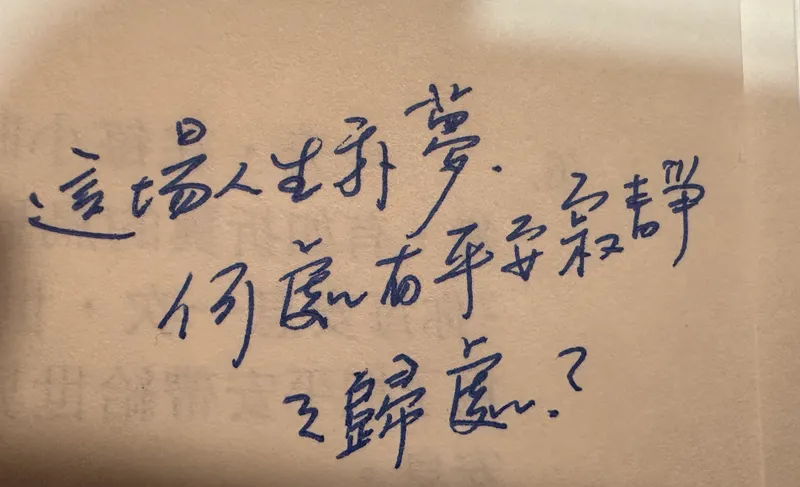 這場人生那夢.
何處有平安寂靜
之歸處?